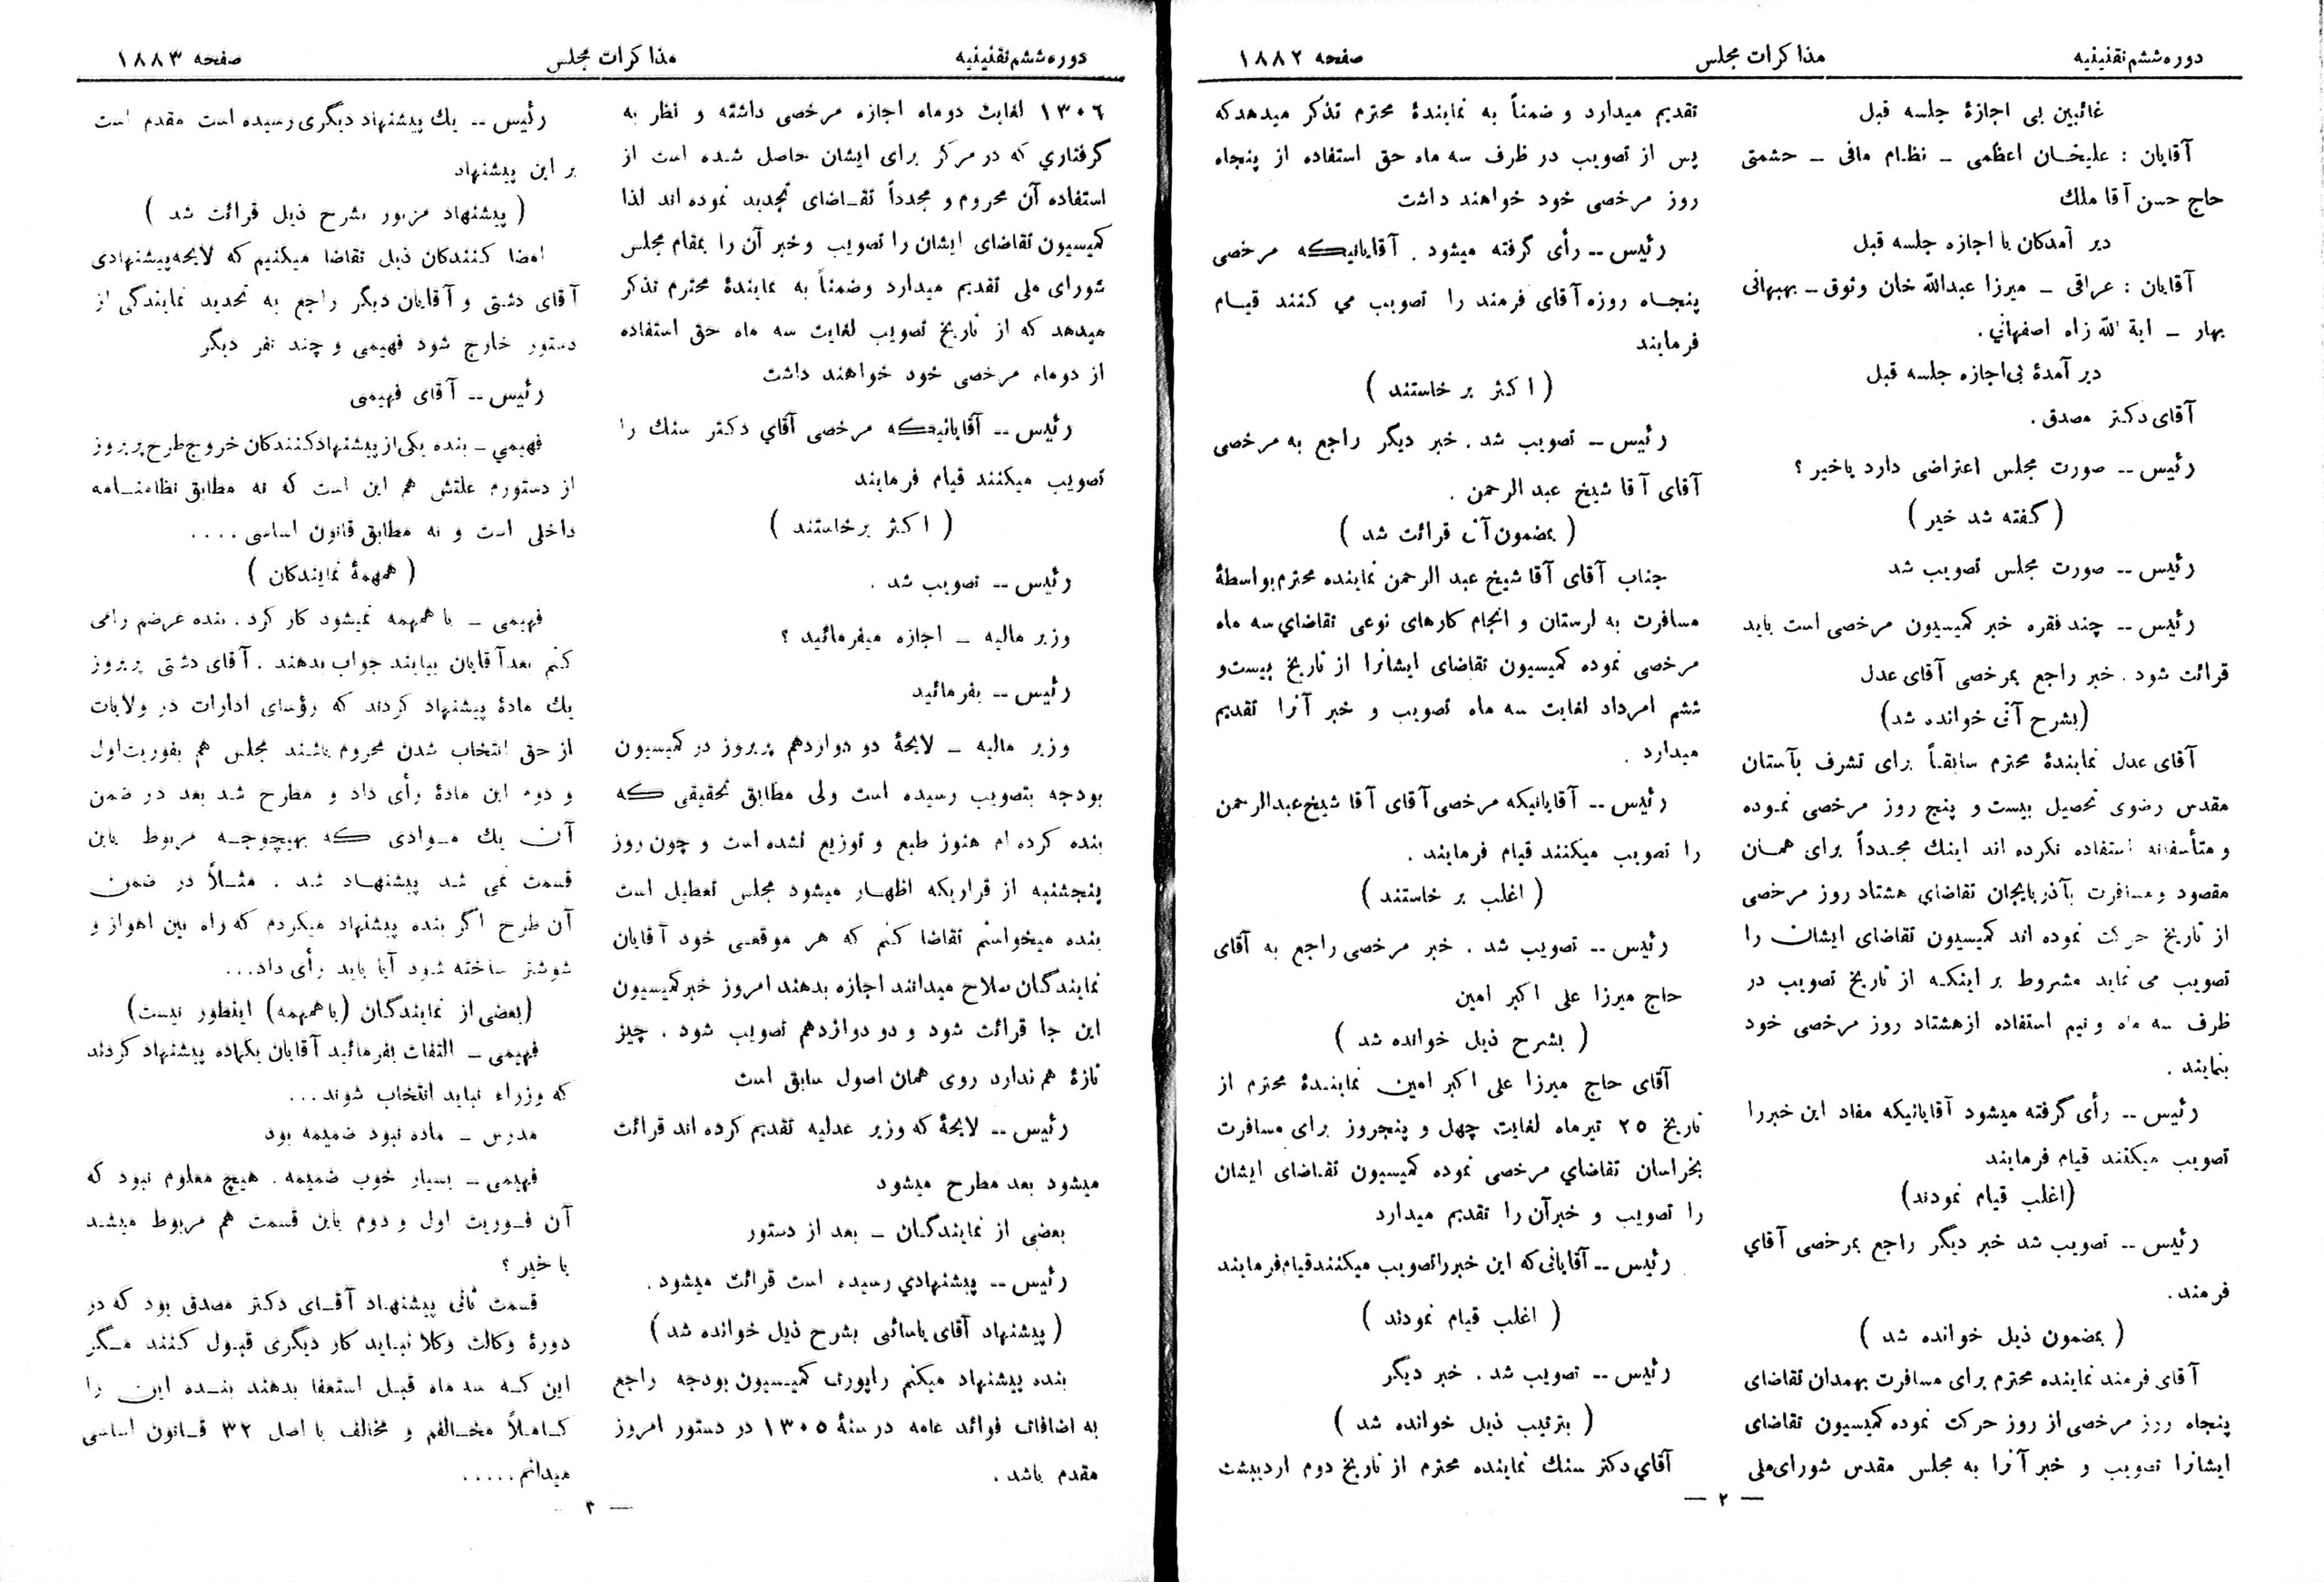 دوره ششم تقنینیه
مذاکرات مجلس
صفحه ۱۸۸۲
غائبین بی اجازهٔ جلسه قبل
آقایان : علیخان اعظمی ــ نظام مافی ــ حشمتی
حاج حسن آقا ملك
دیر آمدکان با اجازه جلسه قبل
آقایان : عراقی ــ میرزا عبدالله خان وثوق ــ بهبهانی
بهار ــ ایة الله زاه اصفهاني .
دیر آمدهٔ بی‌اجازه جلسه قبل
آقای دکتر مصدق .
رئیس -- صورت مجلس اعتراضی دارد یاخیر ؟
( گفته شد خیر )
رئیس -- صورت مجلس تصویب شد
رئیس -- چند فقره خبر کمیسیون مرخصی است باید
قرائت شود . خبر راجع بمرخصی آقای عدل
(بشرح آتی خوانده شد)
آقای عدل نمایندهٔ محترم سابقاً برای تشرف بآستان
مقدس رضوی تحصیل بیست و پنج روز مرخصی نموده
و متأسفانه استفاده نکرده اند اینك مجدداً برای همان
مقصود ومسافرت بآذربایجان تقاضاي هشتاد روز مرخصی
از تاریخ حرکت نموده اند کمیسیون تقاضای ایشان را
تصویب می نماید مشروط بر اینکه از تاریخ تصویب در
ظرف سه ماه و نیم استفاده ازهشتاد روز مرخصی خود
بنمایند .
رئیس -- رأی گرفته میشود آقایانیکه مفاد این خبررا
تصویب میکنند قیام فرمایند
(اغلب قیام نمودند)
رئیس -- تصویب شد خبر دیگر راجع بمرخصی آقاي
فرمند .
( بمضمون ذیل خوانده شد )
آقای فرمند نماینده محترم برای مسافرت بهمدان تقاضای
پنجاه روز مرخصی از روز حرکت نموده کمیسیون تقاضای
ایشانرا تصویب و خبر آنرا به مجلس مقدس شورای‌ملی
تقدیم میدارد و ضمناً به نمایندهٔ محترم تذکر میدهدکه
پس از تصویب در ظرف سه ماه حق استفاده از پنجاه
روز مرخصی خود خواهند داشت
رئیس -- رأی گرفته میشود . آقایانیکه مرخصی
پنجاه روزه آقای فرمند را تصویب مي کنند قیام
فرمایند
( اکثر بر خاستند )
رئیس -- تصویب شد . خبر دیگر راجع به مرخصی
آقای آقا شیخ عبد الرحمن .
( بمضمون آتی قرائت شد )
جناب آقای آقا شیخ عبد الرحمن نماینده محترم بواسطهٔ
مسافرت به لرستان و انجام کارهای نوعی تقاضاي سه ماه
مرخصی نموده کمیسیون تقاضای ایشانرا از تاریخ بیست‌و
ششم امرداد لغایت سه ماه تصویب و خبر آنرا تقدیم
میدارد .
رئیس -- آقایانیکه مرخصی آقای آقا شیخ عبدالرحمن
را تصویب میکنند قیام فرمایند .
( اغلب بر خاستند )
رئیس -- تصویب شد . خبر مرخصی راجع به آقای
حاج میرزا علی اکبر امین
( بشرح ذیل خوانده شد )
آقای حاج میرزا علی اکبر امین نمایندهٔ محترم از
تاریخ ۲۵ تیرماه لغایت چهل و پنجروز برای مسافرت
بخراسان تقاضاي مرخصی نموده کمیسیون تقاضای ایشان
را تصویب و خبرآن را تقدیم میدارد
رئیس -- آقایانی‌که این خبرراتصویب میکنندقیام‌فرمایند .
( اغلب قیام نمودند )
رئیس -- تصویب شد . خبر دیگر
( بترتیب ذیل خوانده شد )
آقاي دکتر سنك نماینده محترم از تاریخ دوم اردیبهشت
— ۲ —
دوره ششم تقنینیه
مذاکرات مجلس
صفحه ۱۸۸۳
۱۳۰۶ لغایت دوماه اجازه مرخصی داشته و نظر به
گرفتاري که در مرکز برای ایشان حاصل شده است از
استفاده آن محروم و مجدداً تقاضای تجدید نموده اند لذا
کمیسیون تقاضای ایشان را تصویب وخبر آن را بمقام مجلس
شورای ملی تقدیم میدارد وضمناً به نمایندهٔ محترم تذکر
میدهد که از تاریخ تصویب لغایت سه ماه حق استفاده
از دوماه مرخصی خود خواهند داشت
رئیس -- آقایانیکه مرخصی آقاي دکتر سنك را
تصویب میکنند قیام فرمایند
( اکثر برخاستند )
رئیس -- تصویب شد .
وزیر مالیه ــ اجازه میفرمائید ؟
رئیس -- بفرمائید
وزیر مالیه ــ لایحهٔ دو دوازدهم پریروز در کمیسیون
بودجه بتصویب رسیده است ولی مطابق تحقیقی که
بنده کرده ام هنوز طبع و توزیع نشده است و چون روز
پنجشنبه از قراریکه اظهار میشود مجلس تعطیل است
بنده میخواستم تقاضا کنم که هر موقعی خود آقایان
نمایندگان صلاح میدانند اجازه بدهند امروز خبرکمیسیون
این جا قرائت شود و دو دوازدهم تصویب شود . چیز
تازهٔ هم ندارد روی همان اصول سابق است
رئیس -- لایحهٔ که وزیر عدلیه تقدیم کرده اند قرائت
میشود بعد مطرح میشود
بعضی از نمایندگان ــ بعد از دستور
رئیس -- پیشنهادي رسیده است قرائت میشود .
( پیشنهاد آقای یاسائی بشرح ذیل خوانده شد )
بنده پیشنهاد میکنم راپورت کمیسیون بودجه راجع
به اضافات فوائد عامه در سنهٔ ۱۳۰۵ در دستور امروز
مقدم باشد .
رئیس -- یك پیشنهاد دیگری رسیده است مقدم است
بر این پیشنهاد
( پیشنهاد مزبور بشرح ذیل قرائت شد )
امضا کنندکان ذیل تقاضا میکنیم که لایحه پیشنهادی
آقای دشتی و آقایان دیگر راجع به تحدید نمایندگی از
دستور خارج شود فهیمی و چند نفر دیگر
رئیس -- آقای فهیمی
فهیمي ــ بنده یکی‌از پیشنهادکنندکان خروج‌طرح پریروز
از دستورم علتش هم این است که نه مطابق نظامنامه
داخلی است و نه مطابق قانون اساسی ....
( همهمهٔ نمایندکان )
فهیمی ــ با همهمه نمیشود کار کرد . بنده عرضم رامی
کنم بعدآقایان بیایند جواب بدهند . آقای دشتی پریروز
یك مادهٔ پیشنهاد کردند که رؤسای ادارات در ولایات
از حق انتخاب شدن محروم باشند مجلس هم بفوریت‌اول
و دوم این مادهٔ رأی داد و مطرح شد بعد در ضمن
آن یك موادی که بهیچوجه مربوط باین
قسمت نمی شد پیشنهاد شد . مثلاً در ضمن
آن طرح اگر بنده پیشنهاد میکردم که راه بین اهواز و
شوشتر ساخته شود آیا باید رأی داد...
(بعضی از نمایندگان (با همهمه) اینطور نیست)
فهیمی ــ التفات بفرمائید آقایان یکماده پیشنهاد کردند
که وزراء نباید انتخاب شوند...
مدرس ــ ماده نبود ضمیمه بود
فهیمی ــ بسیار خوب ضمیمه . هیچ معلوم نبود که
آن فوریت اول و دوم باین قسمت هم مربوط میشد
یا خیر ؟
قسمت ثانی پیشنهاد آقای دکتر مصدق بود که در
دورهٔ وکالت وکلا نباید کار دیگری قبول کنند مگر
این که سه ماه قبل استعفا بدهند بنده این را
کاملاً مخالفم و مخالف با اصل ۳۲ قانون اساسی
میدانم.....
— ۳ —